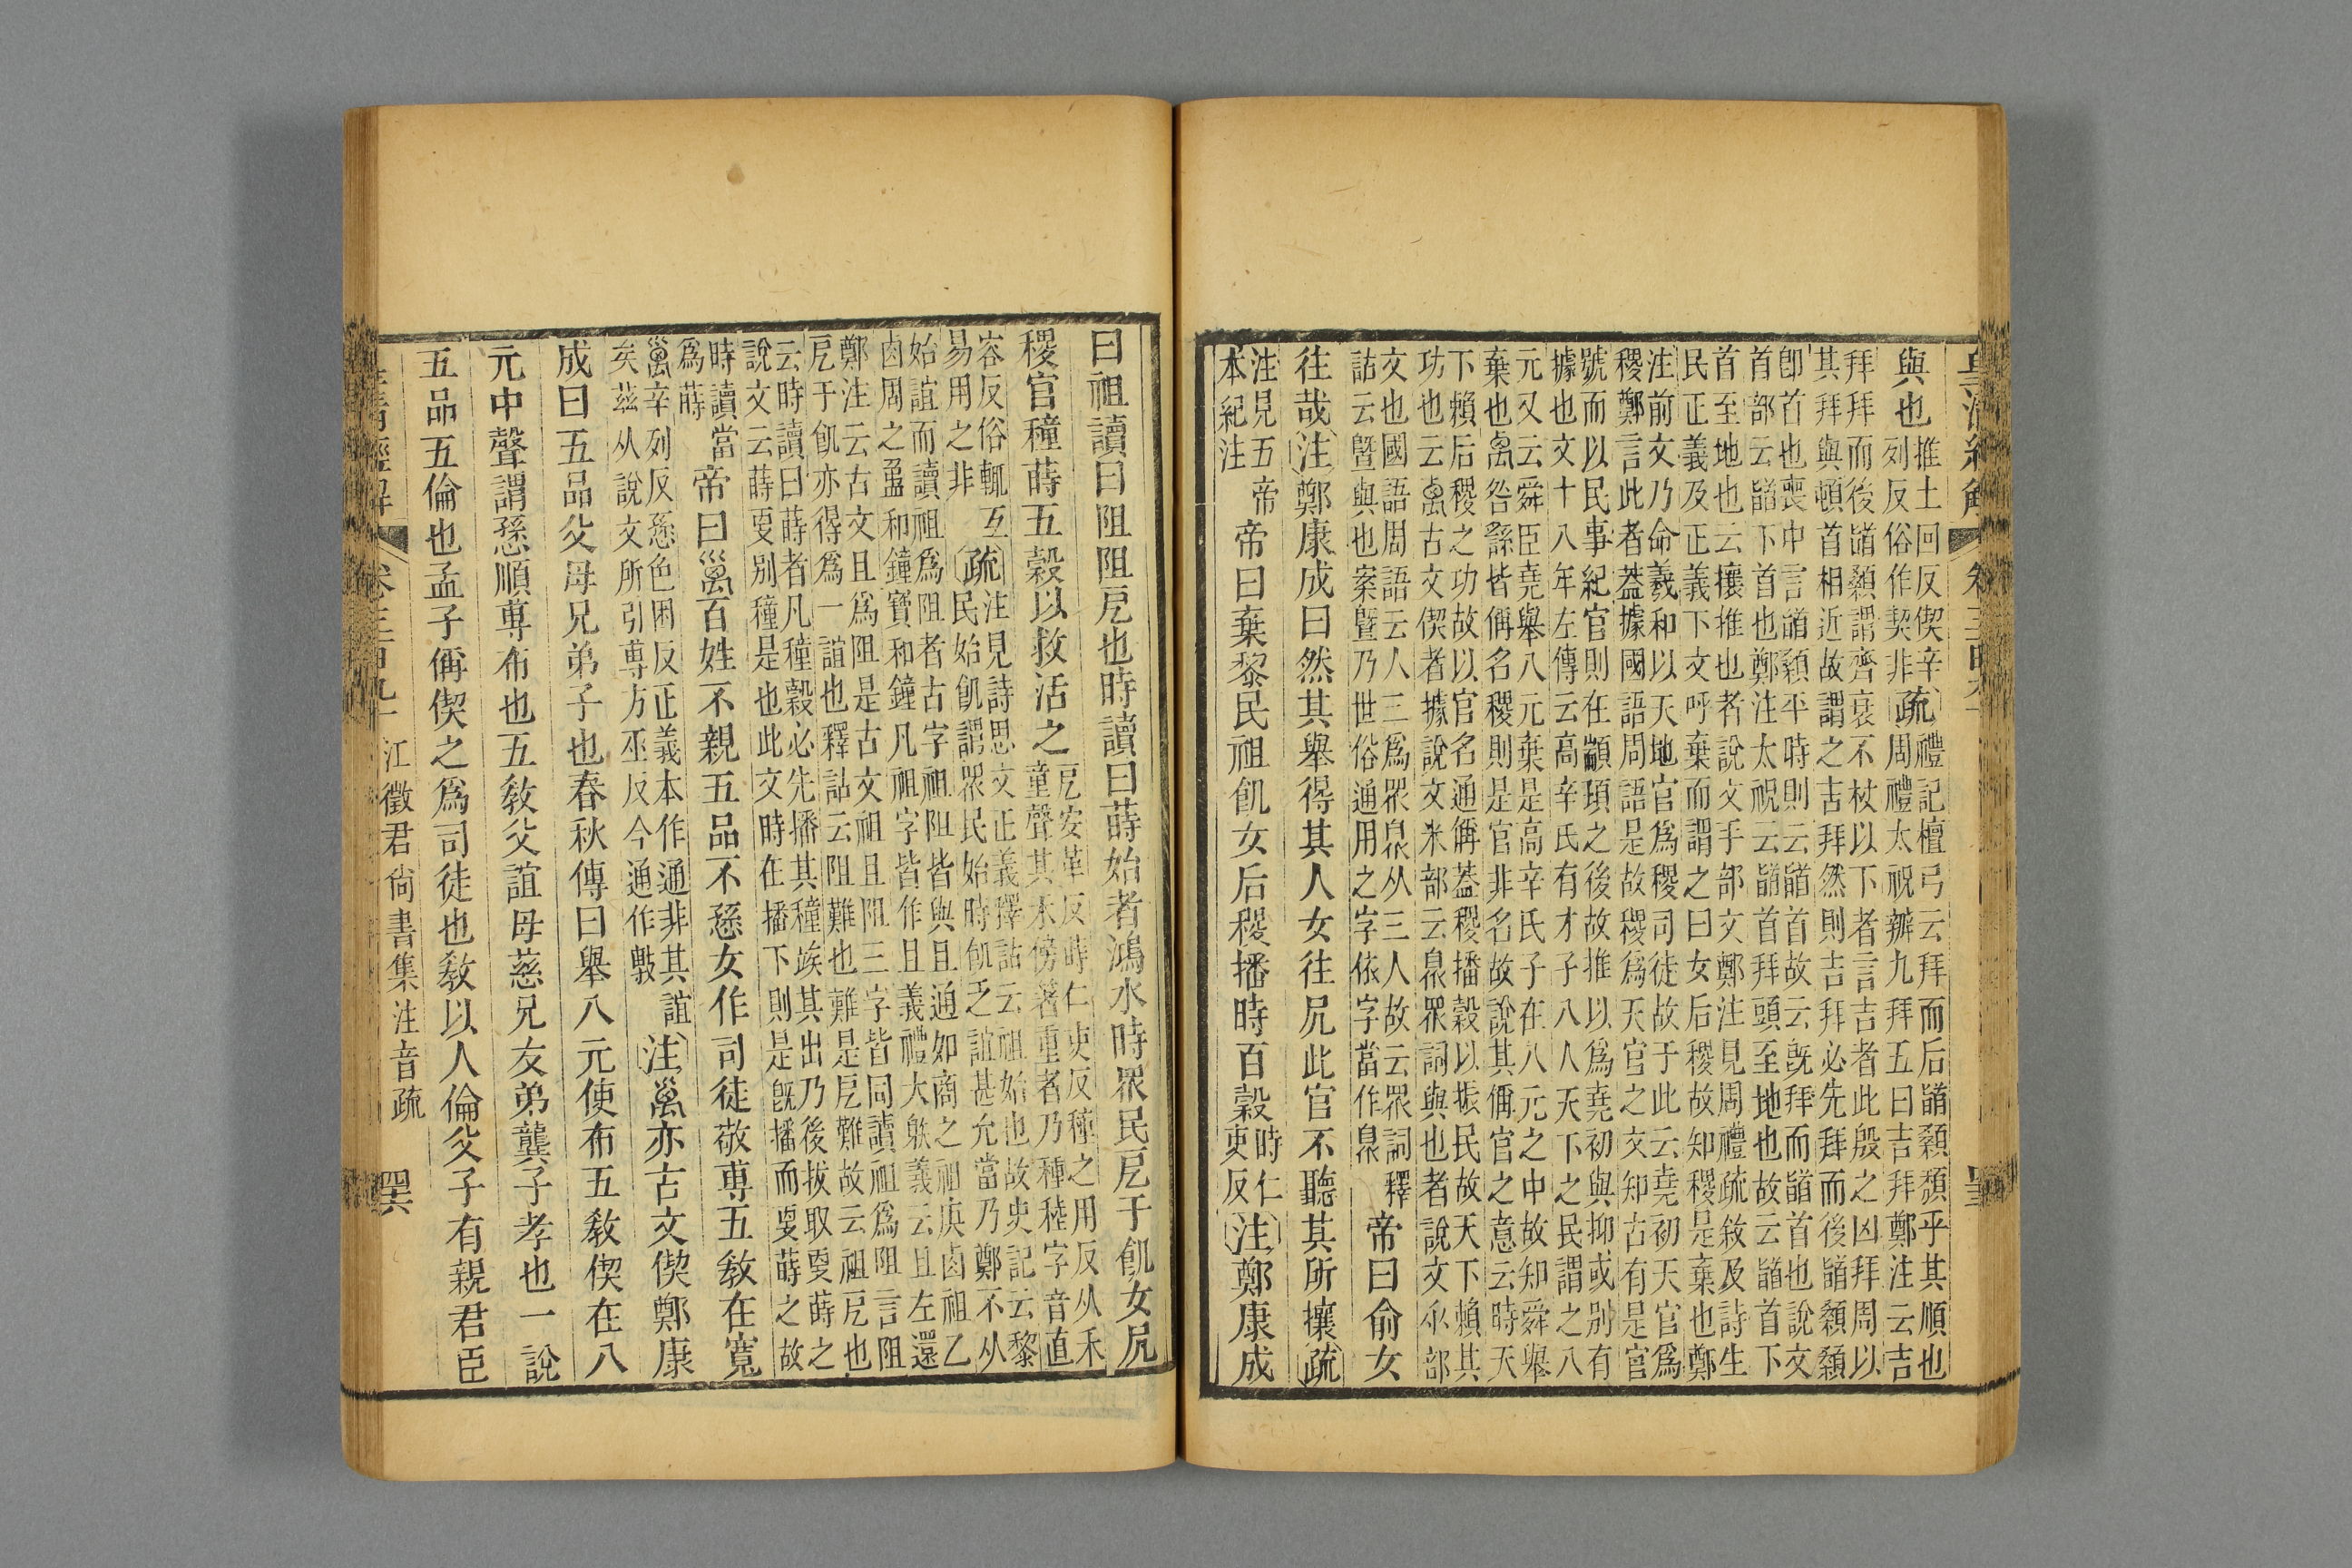 與也推土回反偰辛列反俗作契非疏禮記檀弓云拜而后䭫顙頹乎其順也
周禮太祝辦九拜五曰吉拜鄭注云吉
拜拜而後䭫顙謂齊衰不杖以下者言吉者此殷之凶拜周以
其拜與頓首相近故謂之吉拜然則吉拜必先拜而後䭫顙顙
卽首也喪中言䭫顙平時則云䭫首故云旣拜而䭫首也說文
𩠐部云䭫下首也鄭注太祝云䭫首拜頭至地也故云䭫首下
首至地也云攘推也者說文手部文鄭注見周禮疏敘及詩生
民正義及正義下文呼棄而謂之曰女后稷故知稷是棄也鄭
注前文乃命羲和以天地官爲稷司徒故于此云堯初天官爲
稷鄭言此者葢據國語周語是故稷爲天官之文知古有是官
號而以民事紀官則在顓頊之後故推以爲堯初與抑或別有
據也文十八年左傳云高辛氏有才子八人天下之民謂之八
元又云舜臣堯舉八元棄是高辛氏子在八元之中故知舜舉
棄也卨咎繇皆偁名稷則是官非名故說其偁官之意云時天
下賴后稷之功故以官名通偁葢稷播穀以振民故天下賴其
功也云卨古文偰者據說文米部云臮眾詞與也者說文㐺部
文也國語周語云人三爲眾臮从三人故云眾詞釋
詁云曁與也案曁乃世俗通用之字依字當作臮
帝曰俞女
往哉注鄭康成曰然其舉得其人女往凥此官不聽其所攘疏
注見五帝
本紀注
帝曰棄黎民祖飢女后稷播時百穀時仁吏反注鄭康成
曰祖讀曰阻阻戹也時讀曰蒔始者鴻水時眾民戹于飢女凥
稷官種蒔五穀以救活之戹安革反時仁吏反種之用反从禾
童聲其木傍著重者乃種稑字音直
容反俗輒互
易用之非
疏注見詩思文正義釋詁云祖始也故史記云黎
民始飢謂眾民始時飢乏誼甚允當乃鄭不从
始誼而讀祖爲阻者古字祖阻皆與且通如商之祖庚卣祖乙
卣周之盄和鐘寶和鐘凡祖字皆作且義禮大䠶義云且左還
鄭注云古文且爲阻是古文祖且阻三字皆同讀祖爲阻言阻
戹于飢亦得爲一誼也釋詁云阻難也難是戹難故云祖戹也
云時讀曰蒔者凡種穀必先播其種竢其出乃後拔取更蒔之
說文云蒔更別種是也此文時在播下則是旣播而更蒔之故
時讀當
爲蒔
帝曰卨百姓不親五品不愻女作司徒敬尃五敎在寬
卨辛列反愻色困反正義本作通非其誼
矣茲从說文所引尃方巫反今通作敷
注卨亦古文偰鄭康
成曰五品父母兄弟子也春秋傳曰舉八元使布五敎偰在八
元中聲謂愻順尃布也五敎父誼母慈兄友弟龔子孝也一說
五品五倫也孟子偁偰之爲司徒也敎以人倫父子有親君臣
江徵君尙書集注音疏